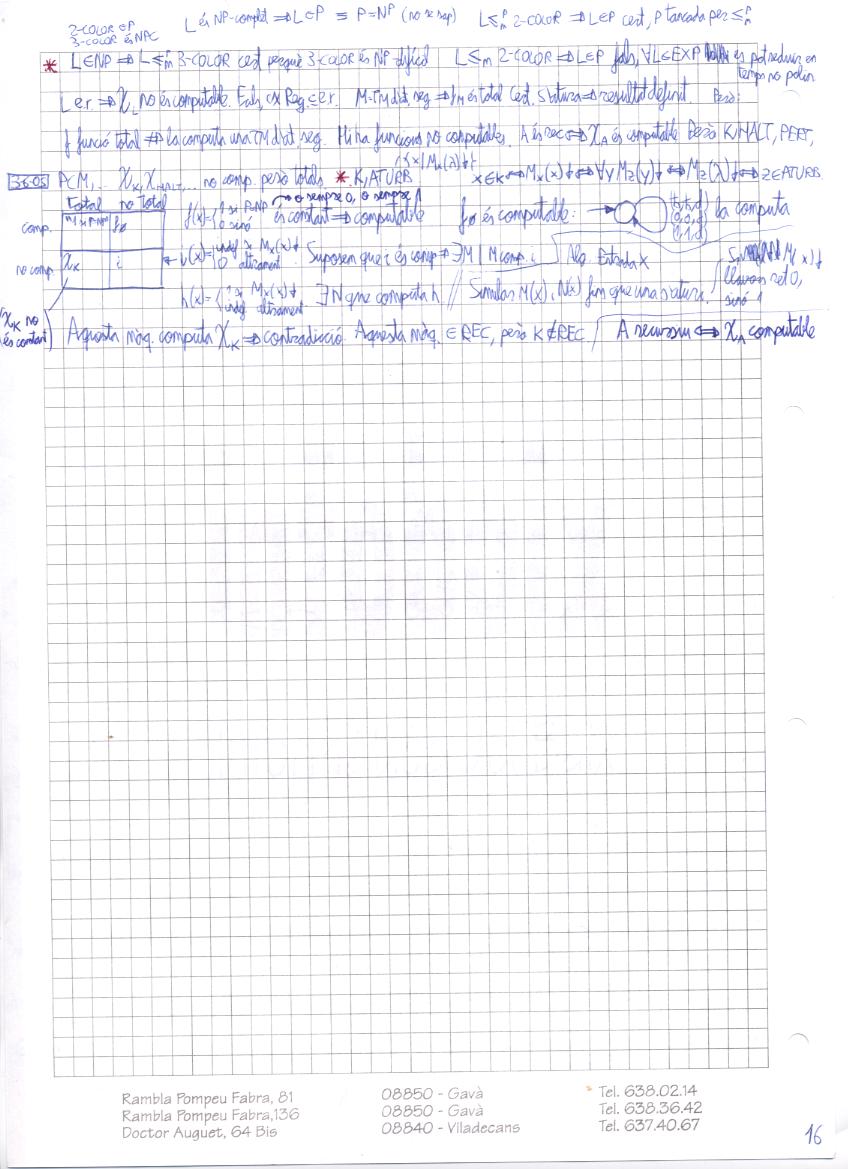 2-COLOR ∈ P
3-COLOR és NPC
L és NP-complet ⇒ L ∈ P ≡ P=NP (no se sap)
L ≤ᵖₘ 2-COLOR ⇒ L∈P cert, P tancada per ≤ᵖₘ
* L∈NP ⇒ L ≤ᵖₘ 3-COLOR cert perquè 3-COLOR és NP-difícil L ≤ₘ 2-COLOR ⇒ L∈P fals, ∀L∈EXP es pot reduir en
temps no polin
L er ⇒ χ_L no és computable. Fals, ex Reg ⊆ er. M-TM d'at. seg ⇒ f_M és total Cert, s'atura ⇒ resultat definit. Però:
f funció total ⇏ la computa una TM d'at seg. Hi ha funcions no computables. A és rec ⇔ χ_A és computable Però K, HALT, PERT,
36.05 PCM,... χ_K, χ_HALT,... no comp. però totals * K, ATURB
x∈K ⇔ M_x(x)↓ ⇔ ∀y M_z(y)↓ ⇔ M_z(λ)↓ ⇔ z∈ATURB.
total no total
comp. f₀
f(x)={1 si P=NP 0 sinó → o sempre 0, o sempre 1
és constant ⇒ computable
f₀ és computable: la computa
no comp χ_K i
i(x)={indef si M_x(x)↓ 0 altrament. Suposem que i és comp ⇒ ∃M | M comp. i Alg. Entrada x
h(x)={1 si M_x(x)↓ indef altrament ∃N que computa h // Simular M(x), N(x) fins que una s'aturi.
M(x)↓
llavors ret 0,
sinó 1
(χ_K no
és constant)
Aquesta màq. computa χ_K ⇒ contradicció. Aquesta màq. ∈ REC, però K∉REC. A recursiu ⇔ χ_A computable
Rambla Pompeu Fabra, 81 08850 - Gavà Tel. 638.02.14
Rambla Pompeu Fabra,136 08850 - Gavà Tel. 638.36.42
Doctor Auguet, 64 Bis 08840 - Viladecans Tel. 637.40.67
16